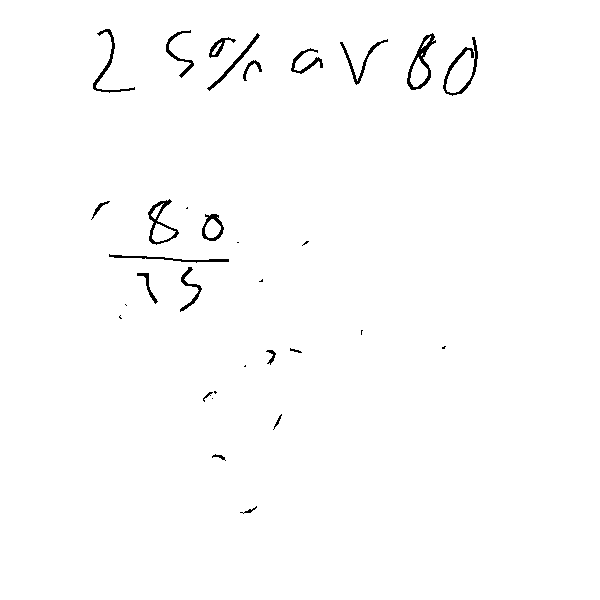 25% av 80
80
25